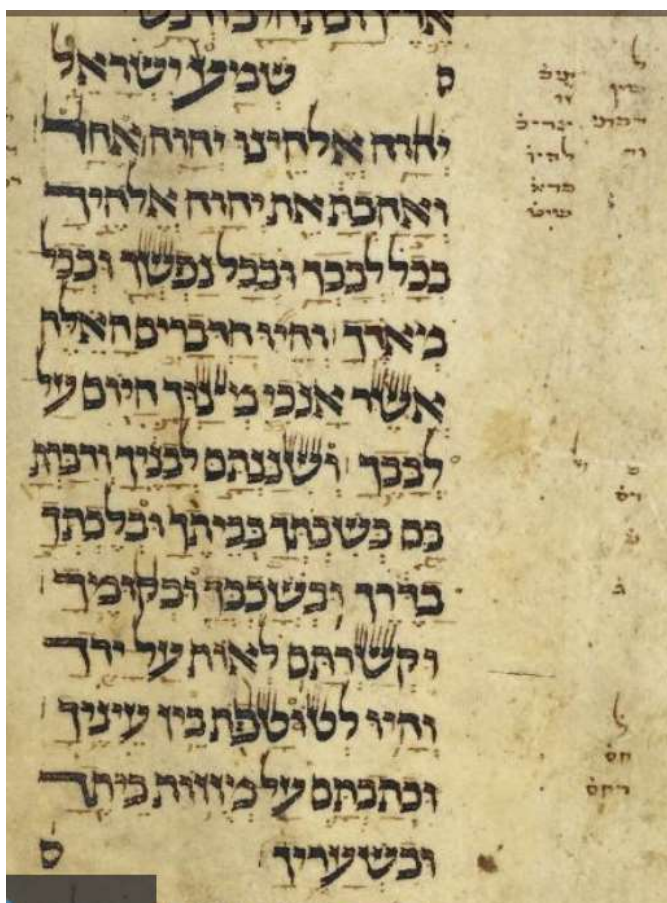 ס שמע ישראל
יהוה אלהינו יהוה אחד
ואהבת את יהוה אלהיך
בכל לבבך ובכל נפשך ובכל
מאדך והיו הדברים האלה
אשר אנכי מצוך היום על
לבבך ושננתם לבניך ודברת
בם בשבתך בביתך ובלכתך
בדרך ובשכבך ובקומך
וקשרתם לאות על ידך
והיו לטוטפת בין עיניך
וכתבתם על מזוזות ביתך
ובשעריך ס